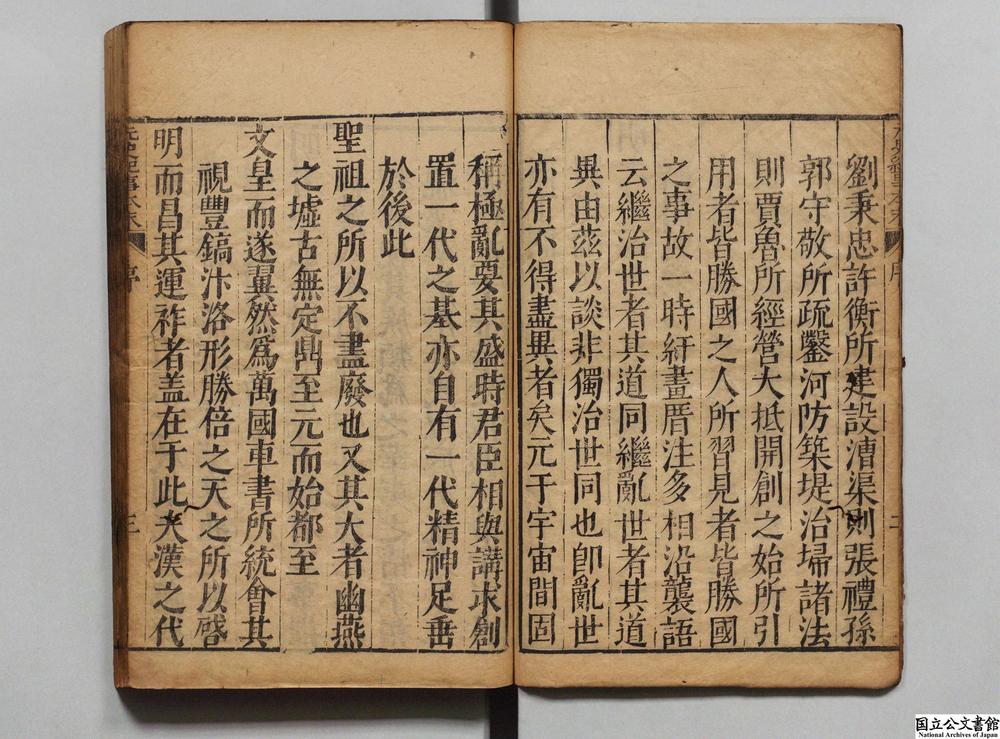 劉秉忠許衡所建設漕渠則張禮孫
郭守敬所疏鑿河防築堤治埽諸法
則賈魯所經營大抵開創之始所引
用者皆勝國之人所習見者皆勝國
之事故一時紆畫厝注多相沿襲語
云繼治世者其道同繼亂世者其道
異由茲以談非獨治世同也卽亂世
亦有不得盡異者矣元于宇宙間固
稱極亂要其盛時君臣相與講求創
置一代之基亦自有一代精神足垂
於後此
聖祖之所以不盡廢也又其大者幽燕
之墟古無定鼎至元而始都至
文皇而遂翼然爲萬國車書所統會其
視豐鎬汴洛形勝倍之天之所以啓
明而昌其運祚者盖在于此夫漢之代
元史紀事本末
序
三
国立公文書館
National Archives of Japan